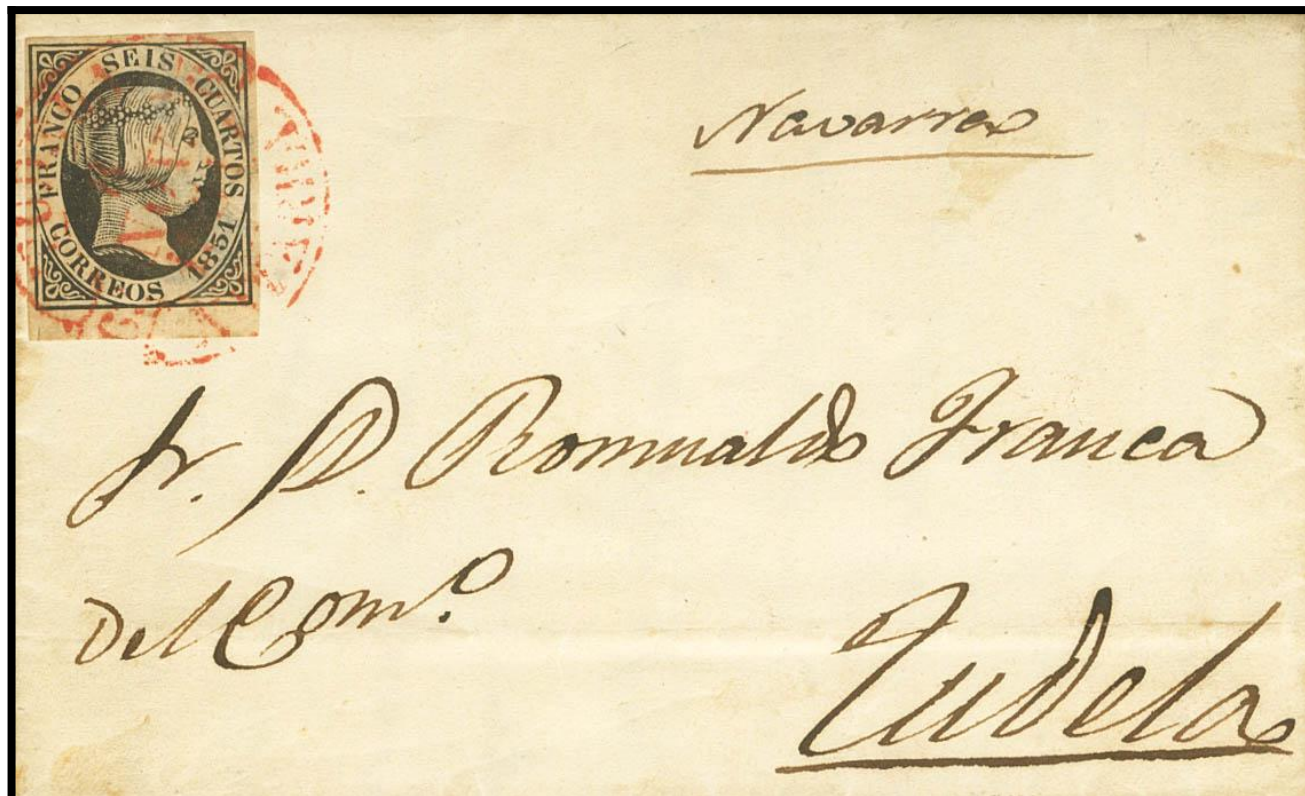 FRANCO SEIS CUARTOS
CORREOS 1851
Navarra
Sr. D. Romualdo Franca
del Com.º
Tudela